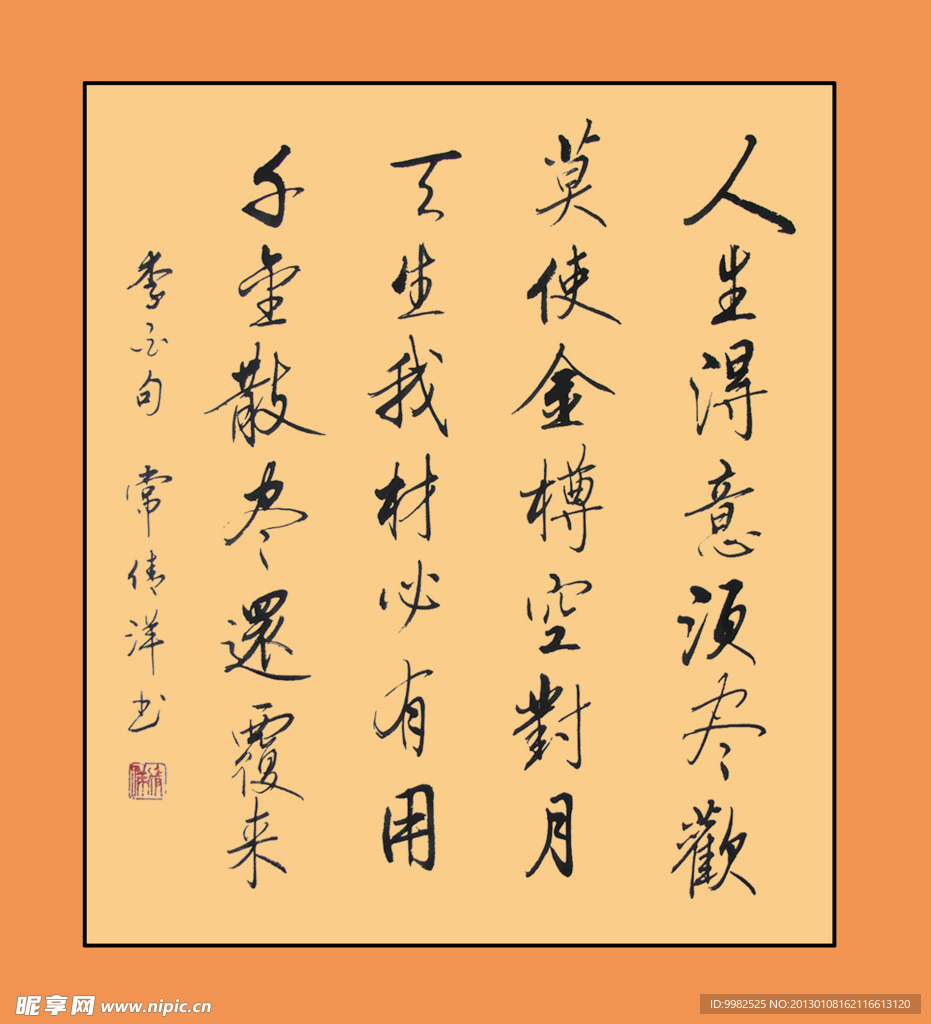 人生得意须尽歡
莫使金樽空對月
天生我材必有用
千金散尽還覆来
李白句 常倩洋书
昵享网 www.nipic.cn
ID:9982525 NO:20130108162116613120